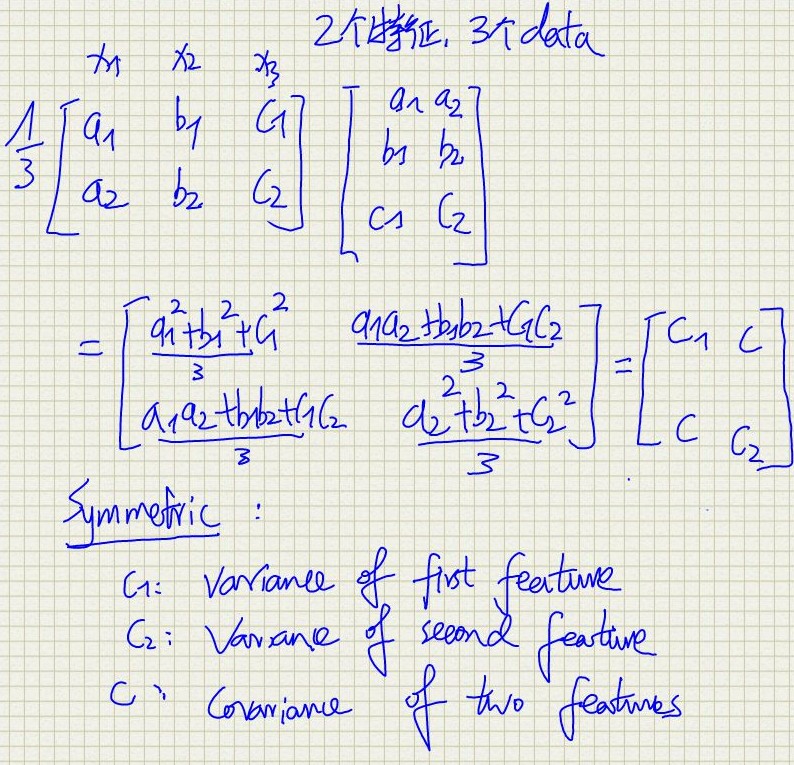 2个特征, 3个data
x1 x2 x3
1/3 [a1 b1 c1] [a1 a2]
[a2 b2 c2] [b1 b2]
[c1 c2]
= [(a1²+b1²+c1²)/3 (a1a2+b1b2+c1c2)/3] = [C1 C]
[(a1a2+b1b2+c1c2)/3 (a2²+b2²+c2²)/3] [C C2]
Symmetric :
C1: Variance of first feature
C2: Variance of second feature
C: Covariance of two features